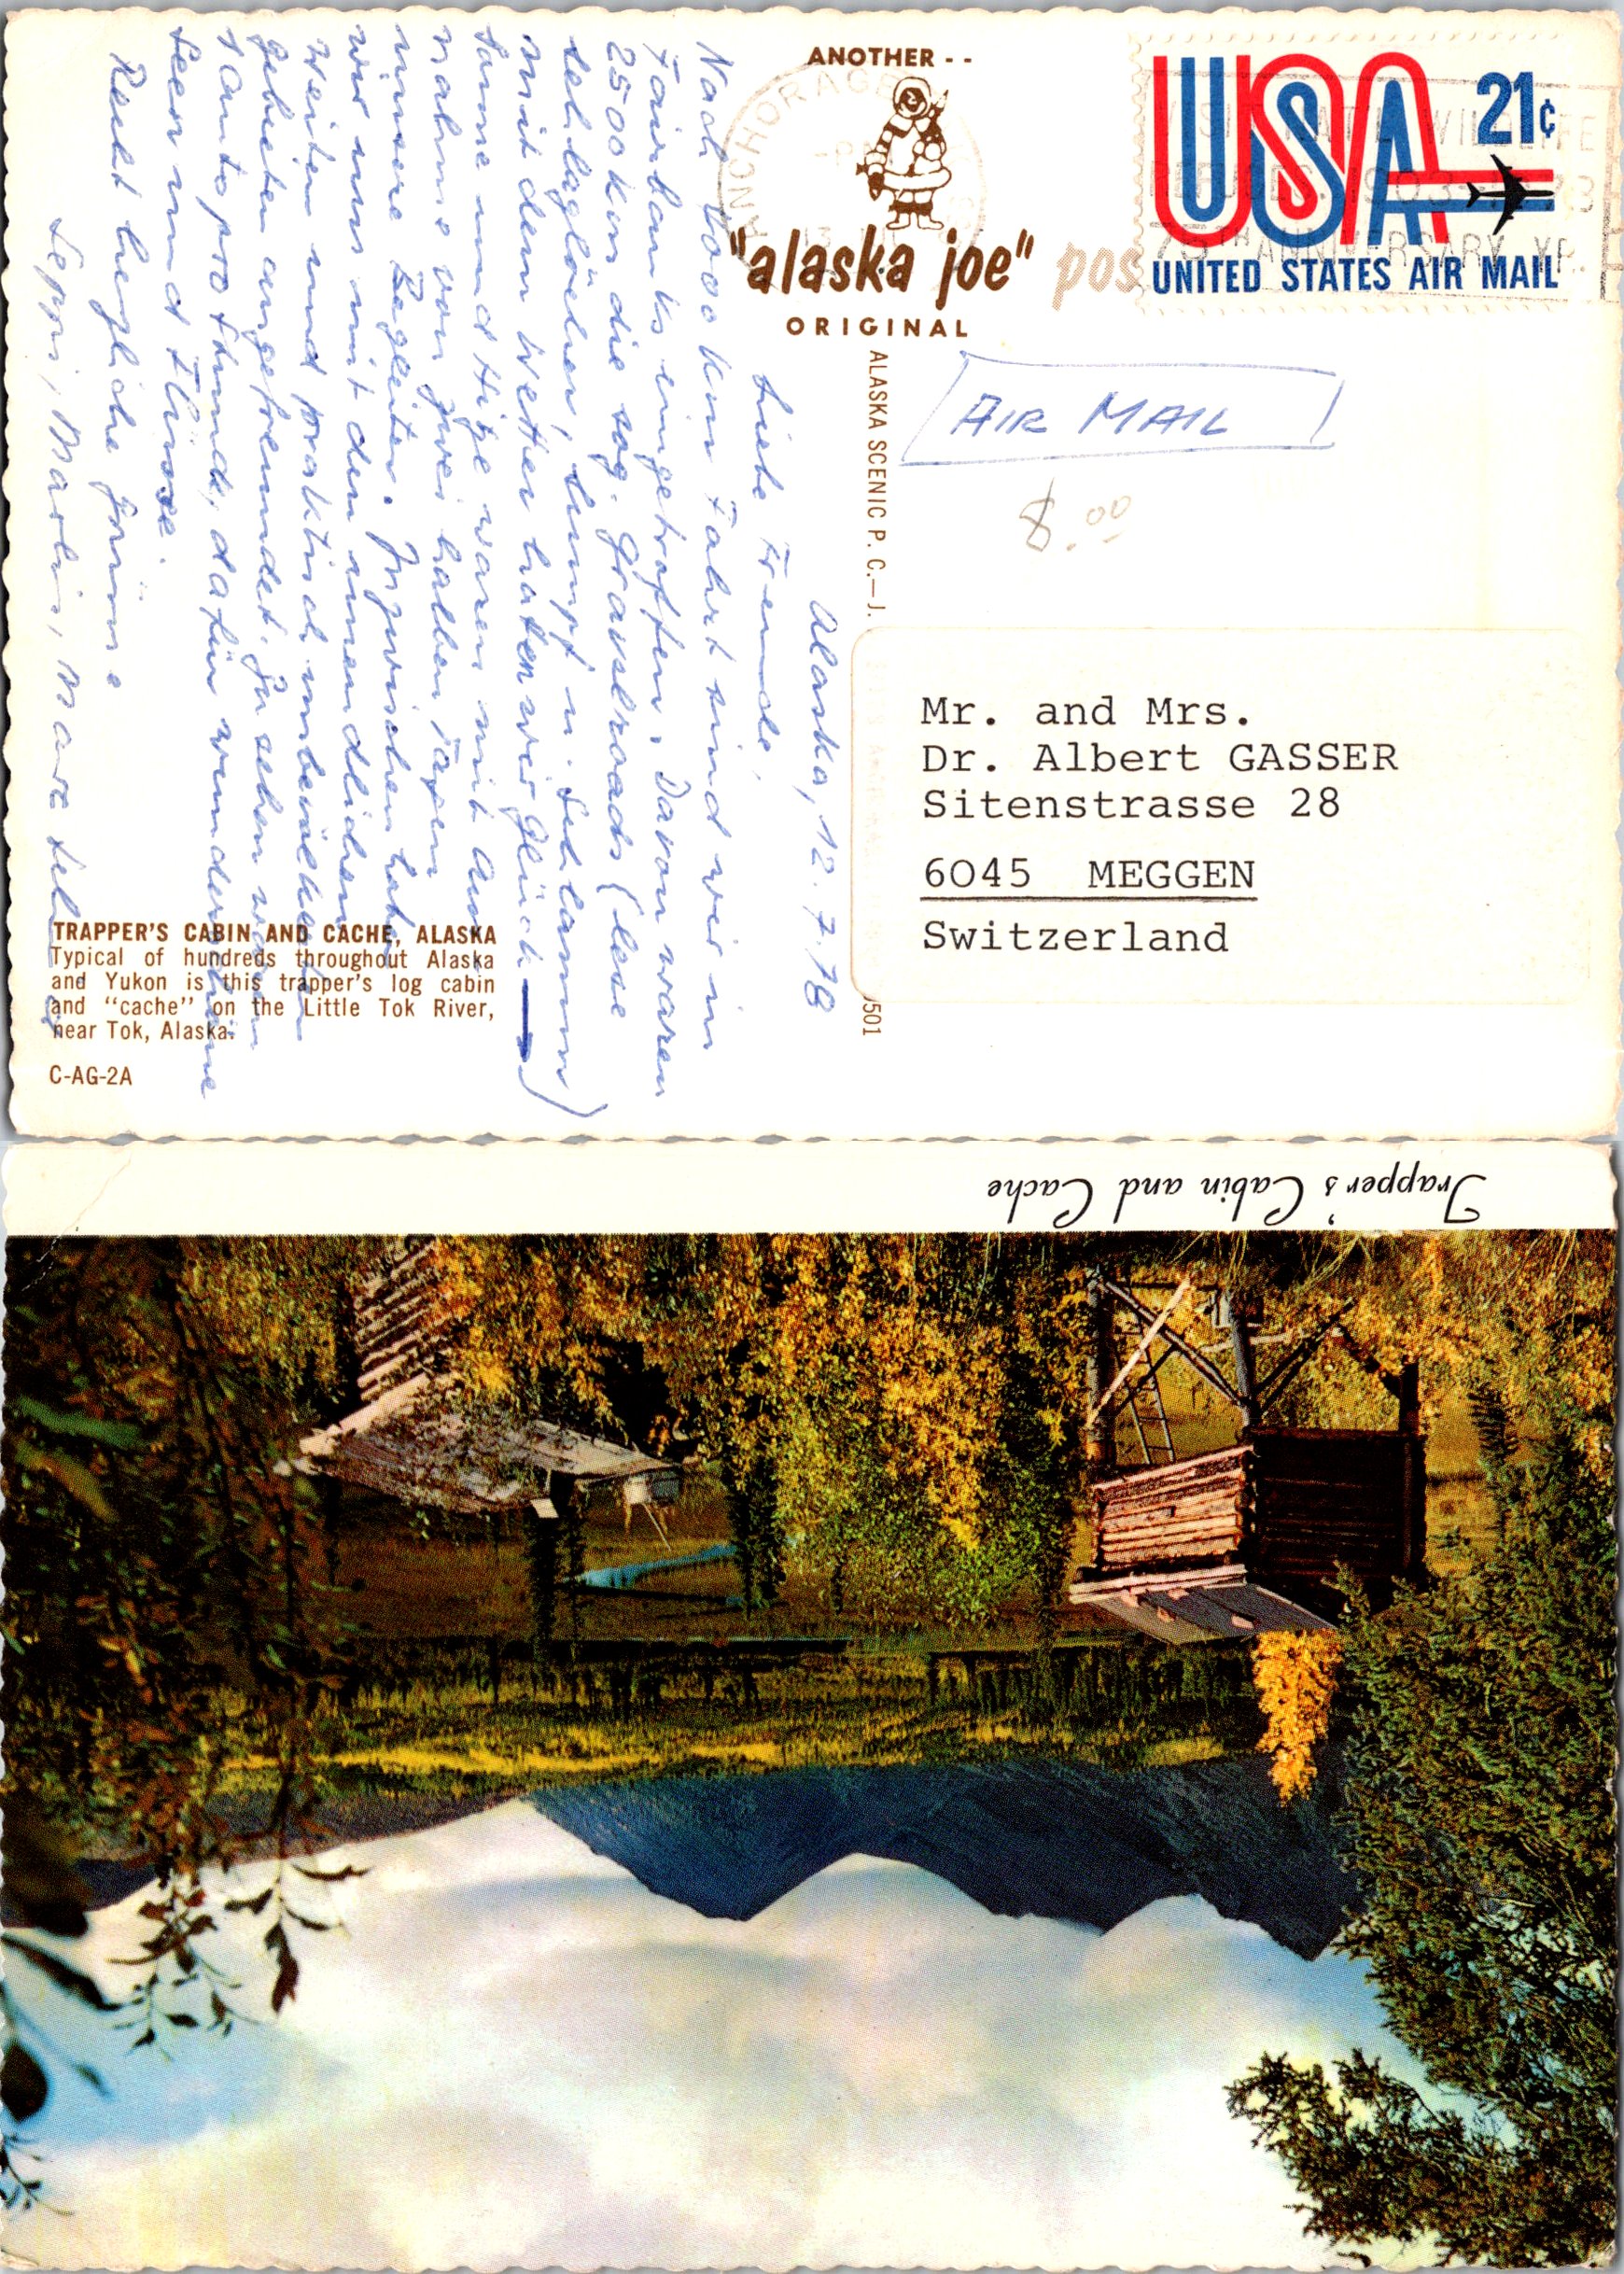 ANOTHER - -
"alaska joe"
ORIGINAL
pos
USA 21¢
UNITED STATES AIR MAIL
ANCHORAGE
WILDLIFE
75TH ANNIVERSARY YR.
AIR MAIL
8.00
ALASKA SCENIC P. C.—J.
501
Mr. and Mrs.
Dr. Albert GASSER
Sitenstrasse 28
6045 MEGGEN
Switzerland
Alaska, 12.7.78
Liebe Freunde,
Nach 4000 km Fahrt sind wir in
Fairbanks eingetroffen. Davon waren
2500 km die sog. Gravelroads (lese
Schlaglöcher, Sumpf u. Schlamm)
mit dem Wetter hatten wir Glück →
Sonne und Hitze waren mit Aus-
nahme von zwei halben Tagen
unsere Begleiter. Inzwischen haben
wir uns mit den unendlichen
Weiten und praktisch unbewohnten
Gebieten angefreundet. Zu sehen
1 Auto pro Stunde, dafür wunderschöne
Seen und Flüsse.
Recht herzliche Grüsse
Seppi, Marlis,
TRAPPER'S CABIN AND CACHE, ALASKA
Typical of hundreds throughout Alaska
and Yukon is this trapper's log cabin
and "cache" on the Little Tok River,
near Tok, Alaska.
C-AG-2A
Trapper's Cabin and Cache